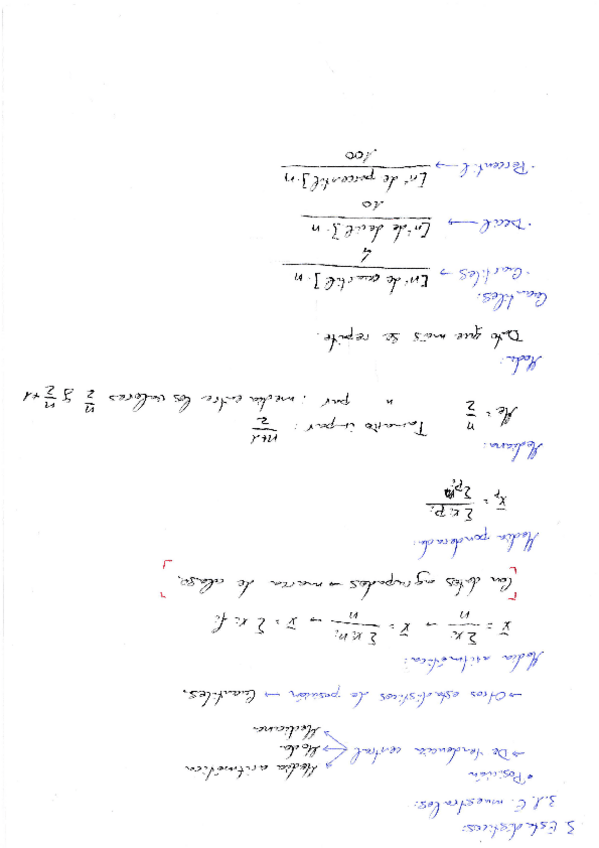 3. Estadísticos:
3.1. E. muestrales:
• Posición
→ De tendencia central
Media aritmética
Moda
Mediana
→ Otros estadísticos de posición → Cuantiles.
Media aritmética:
x̄ = Σxi / n → x̄ = Σxi ni / n → x̄ = Σ xi fi
[Con datos agrupados → marca de clase.]
Media ponderada:
x̄p = Σxi pi / Σpi
Mediana:
Me = n/2 Tamaño impar: n+1/2 n par: media entre los valores n/2 y n/2 +1
Moda:
Dato que más se repite.
Cuantiles:
· Cuartiles → [nº de cuartil]·n / 4
· Decil → [nº de decil]·n / 10
· Percentil → [nº de percentil]·n / 100